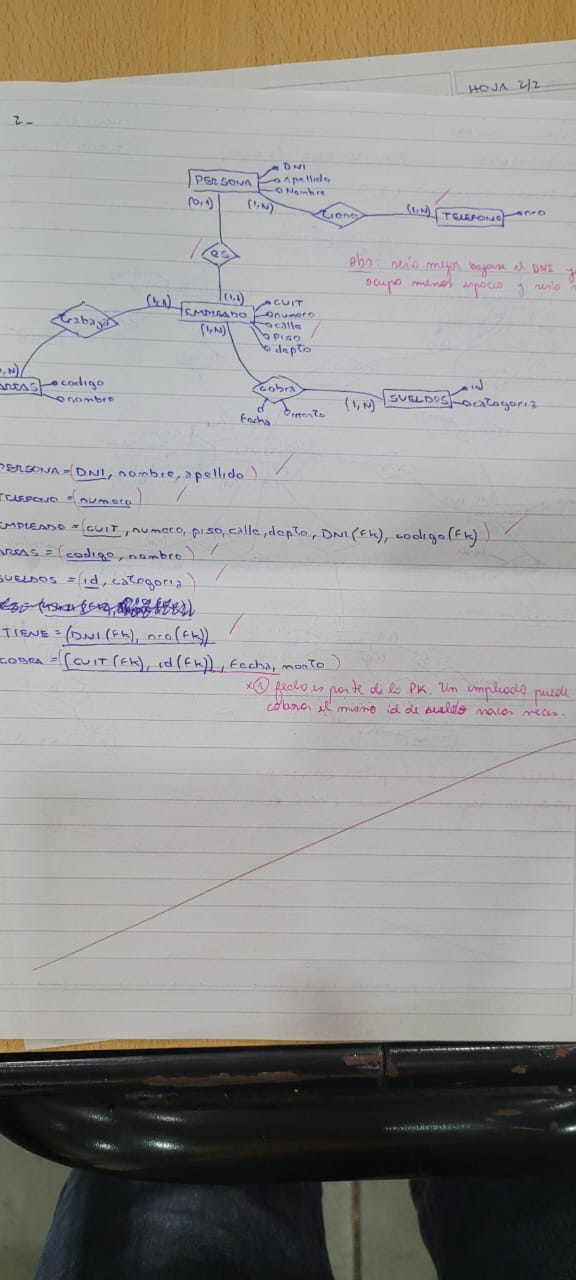 HOJA 2/2
2-
PERSONA
DNI
Apellido
Nombre
(0,1)
(1,N)
tiene
(1,N)
TELEFONO
nro
es
Obs: sería mejor bajarse el DNI y
ocupo menos espacio y sería
(1,1)
(1,1)
EMPLEADO
CUIT
numero
calle
piso
depto
trabaja
(1,N)
,N)
AREAS
codigo
nombre
cobra
fecha
monto
(1,N)
SUELDOS
id
categoria
PERSONA = (DNI, nombre, apellido)
TELEFONO = (numero)
EMPLEADO = (CUIT, numero, piso, calle, depto, DNI(FK), codigo(FK))
AREAS = (codigo, nombre)
SUELDOS = (id, categoria)
TIENE = (DNI(FK), nro(FK))
COBRA = ((CUIT(FK), id(FK)), fecha, monto)
*① fecha es parte de la PK. Un empleado puede
cobrar el mismo id de sueldo varias veces.